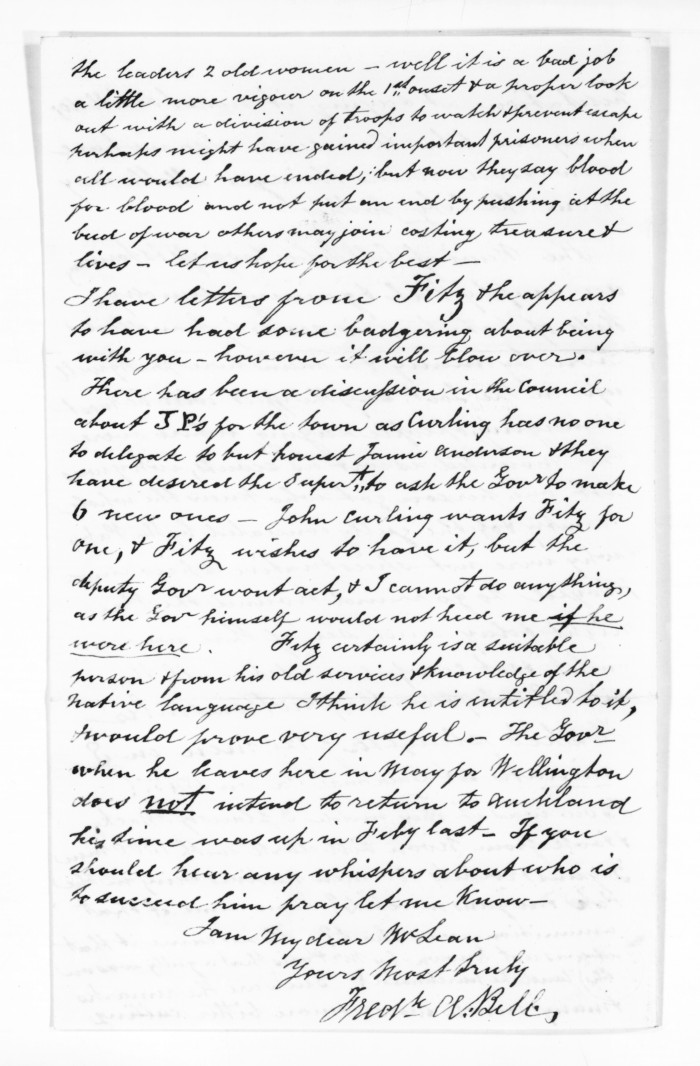 the leaders 2 old women - well it is a bad job
a little more vigour on the 1st. onset & a proper look
out with a division of troops to watch & prevent escape
perhaps might have gained important prisoners when
all would have ended; but now they say blood
for blood and not put an end by pushing at the
bud of war others may join costing treasure &
lives - let us hope for the best -
I have letters from Fitz & he appears
to have had some badgering about being
with you - however it will blow over.
There has been a discussion in the Council
about J P's for the town as Curling has no one
to delegate to but honest Jamie Anderson & they
have desired the Supert. to ask the Govr to make
6 new ones - John Curling wants Fitz for
one, & Fitz wishes to have it, but the
deputy Govr wont act, & I cannot do anything,
as the Govr himself would not heed me if he
were here. Fitz certainly is a suitable
person & from his old services & knowledge of the
native language I think he is intitled to it,
& would prove very useful. - The Govr
when he leaves here in May for Wellington
does not intend to return to Auckland
his time was up in Feby last - If you
should hear any whispers about who is
to succeed him pray let me know -
I am My dear McLean
Yours Most truly
Fredk A. Bell,